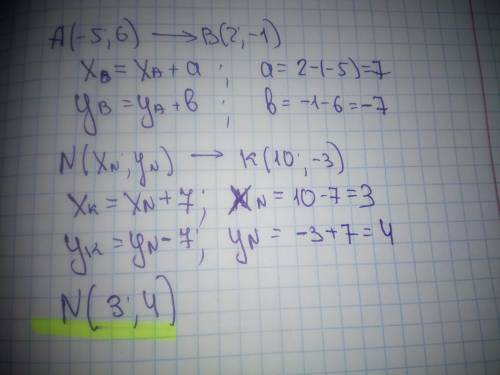 A(-5; 6) → B(2; -1)
x_B = x_A + a ; a = 2-(-5) = 7
y_B = y_A + b ; b = -1-6 = -7
N(x_N; y_N) → K(10; -3)
x_K = x_N + 7 ; x_N = 10-7 = 3
y_K = y_N - 7 ; y_N = -3+7 = 4
N(3; 4)